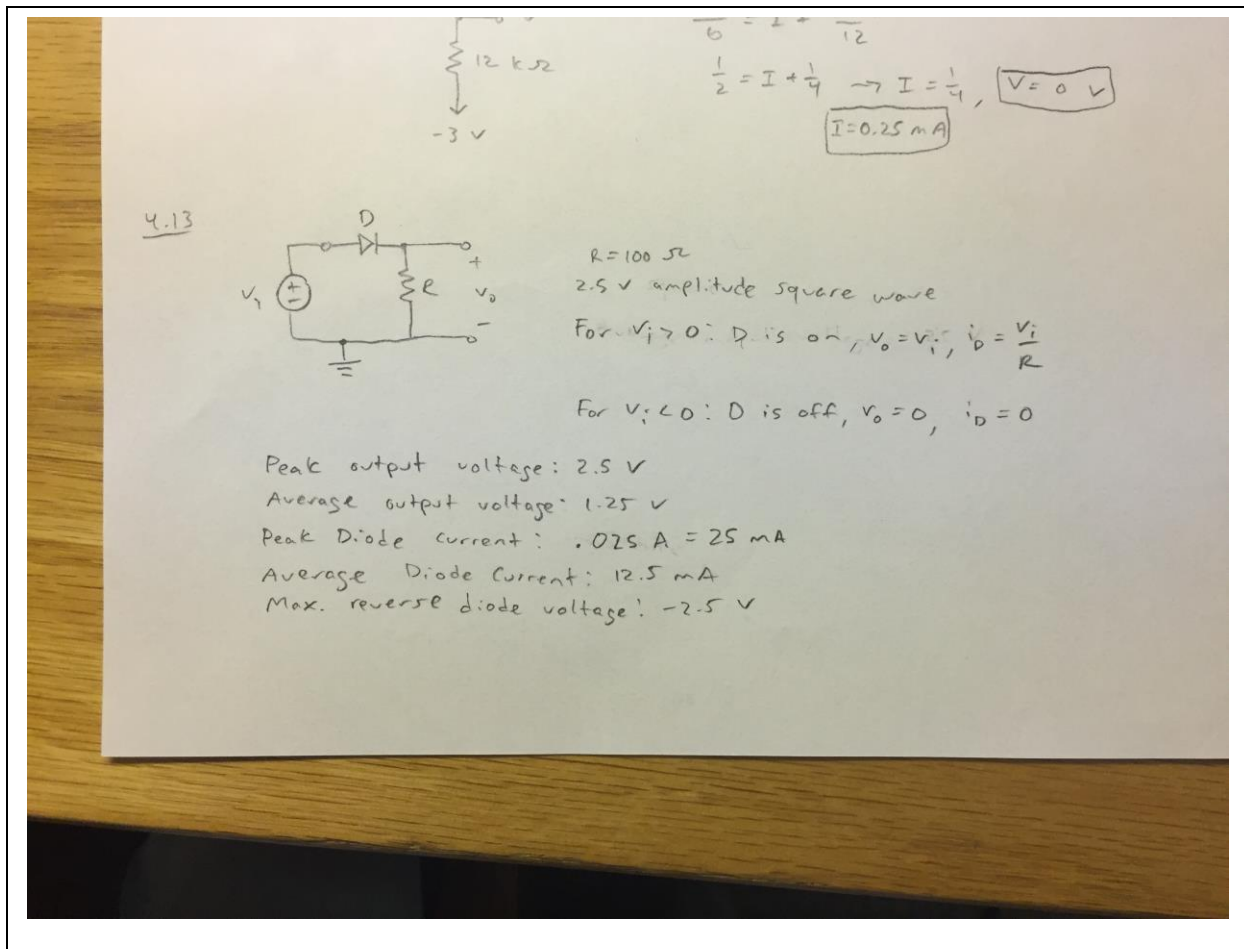 6 = I + 12
12 kΩ
1/2 = I + 1/4 → I = 1/4, V = 0 V
-3 V
I = 0.25 mA
4.13
D
R = 100 Ω
+
V₁ + - R v₀
2.5 v amplitude square wave
-
For vᵢ > 0: D is on, v₀ = vᵢ, i_D = vᵢ/R
For vᵢ < 0: D is off, v₀ = 0, i_D = 0
Peak output voltage: 2.5 V
Average output voltage: 1.25 V
Peak Diode current: .025 A = 25 mA
Average Diode Current: 12.5 mA
Max. reverse diode voltage: -2.5 V